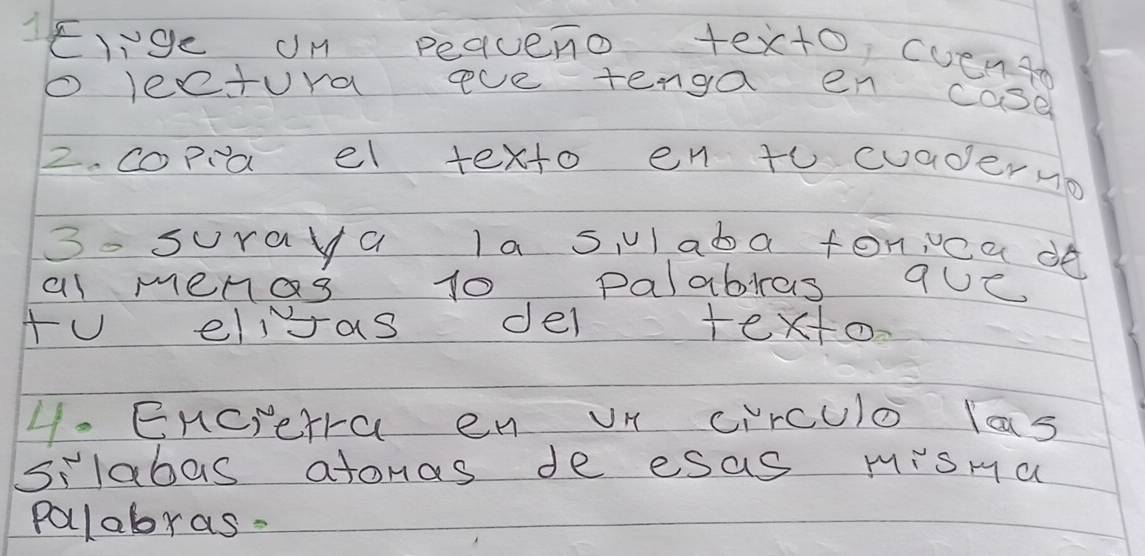 1 Elige un pequeño texto, cuento
o lectura que tenga en casa
2. copia el texto en tu cuaderno
3. suraya la silaba tonica de
al menas 10 palabras que
tu elijas del texto.
4. Encierra en un circulo las
silabas atonas de esas misma
palabras.